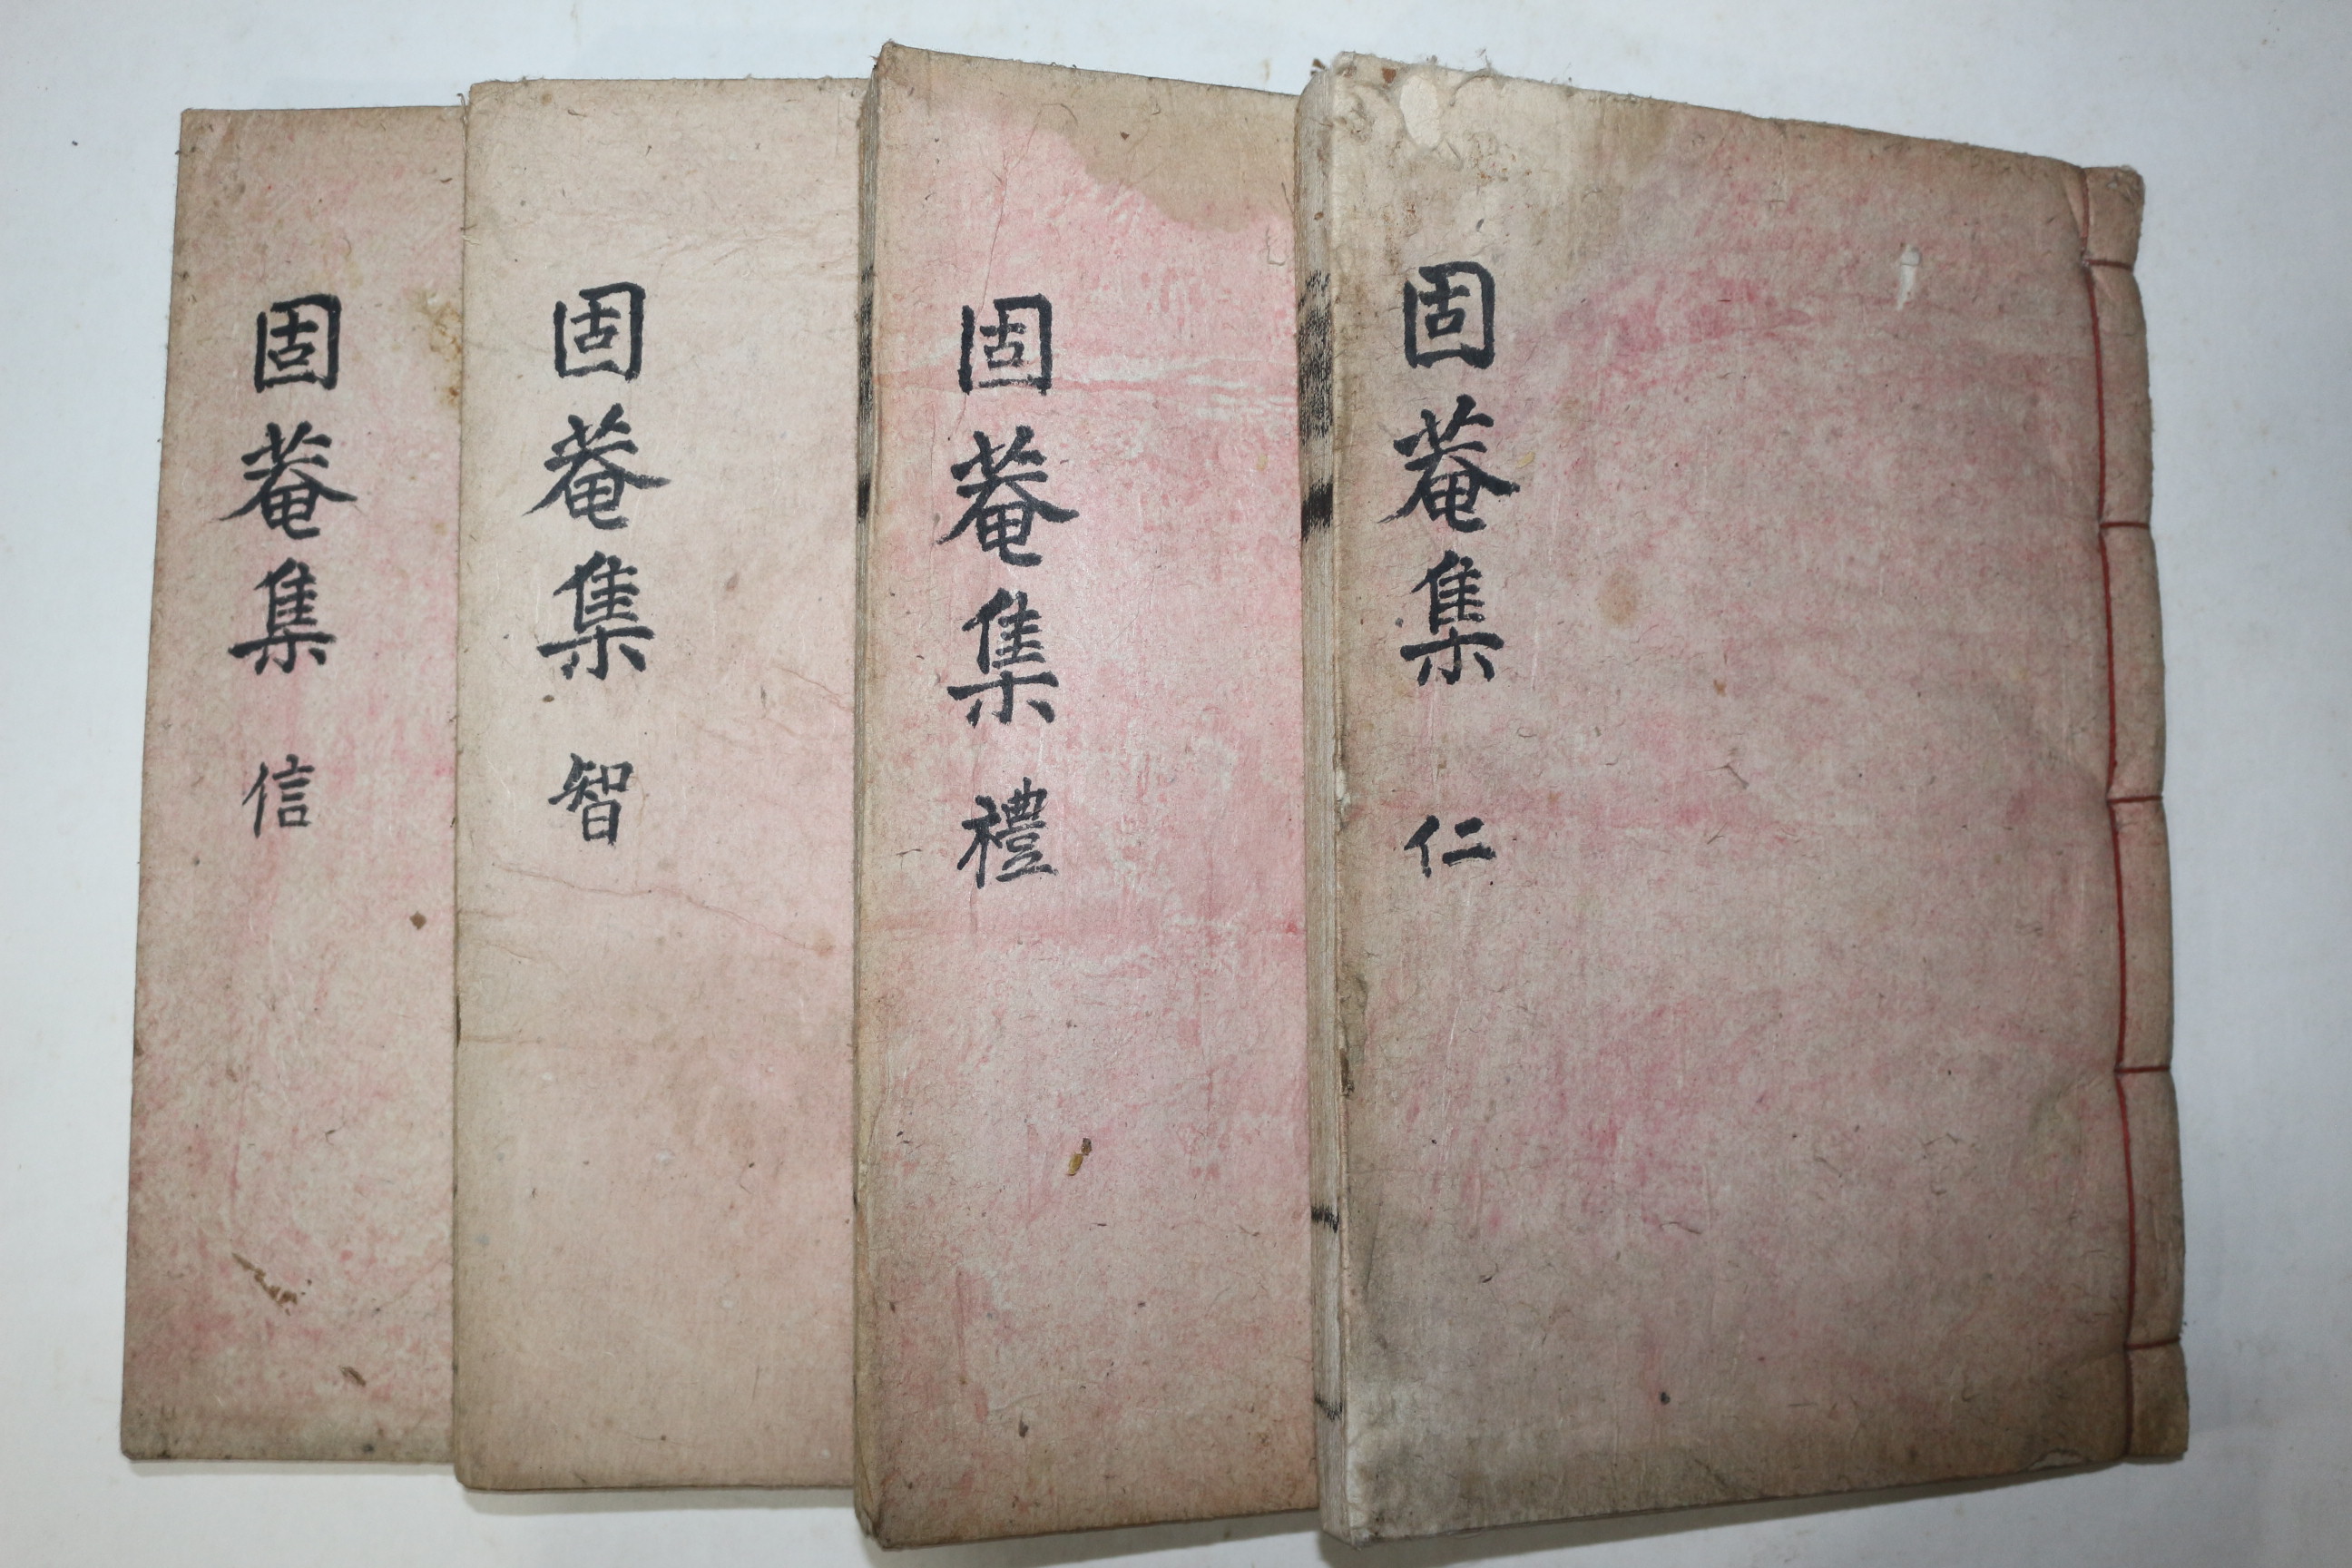 固菴集 仁
固菴集 禮
固菴集 智
固菴集 信